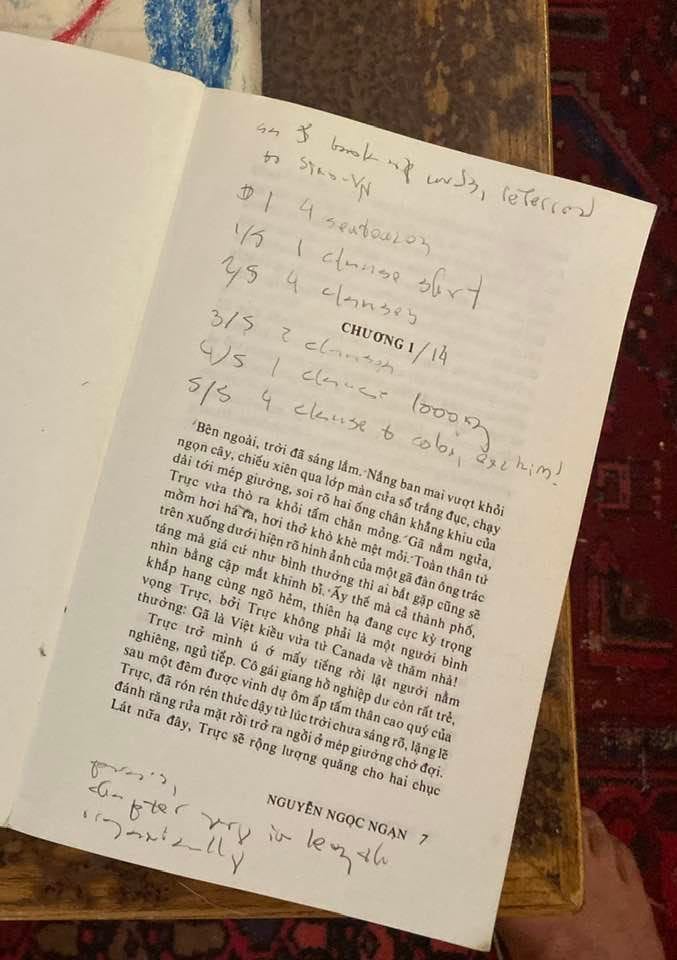 book of words, referred
to Sino-VN
1 4 sentences
1/5 1 clause short
2/5 4 clauses
CHƯƠNG 1 /14
3/5 2 clauses
4/5 1 clause looong
5/5 4 clause to colon, exclaim!
Bên ngoài, trời đã sáng lắm. Nắng ban mai vượt khỏi
ngọn cây, chiếu xiên qua lớp màn cửa sổ trắng đục, chạy
dài tới mép giường, soi rõ hai ống chân khẳng khiu của
Trực vừa thò ra khỏi tấm chăn mỏng. Gã nằm ngửa,
mồm hơi há ra, hơi thở khò khè mệt mỏi. Toàn thân từ
trên xuống dưới hiện rõ hình ảnh của một gã đàn ông trác
táng mà giá cứ như bình thường thì ai bắt gặp cũng sẽ
nhìn bằng cặp mắt khinh bỉ. Ấy thế mà cả thành phố,
khắp hang cùng ngõ hẻm, thiên hạ đang cực kỳ trọng
vọng Trực, bởi Trực không phải là một người bình
thường: Gã là Việt kiều vừa từ Canada về thăm nhà!
Trực trở mình ú ớ mấy tiếng rồi lật người nằm
nghiêng, ngủ tiếp. Cô gái giang hồ nghiệp dư còn rất trẻ,
sau một đêm được vinh dự ôm ấp tấm thân cao quý của
Trực, đã rón rén thức dậy từ lúc trời chưa sáng rõ, lặng lẽ
đánh răng rửa mặt rồi trở ra ngồi ở mép giường chờ đợi.
Lát nữa đây, Trực sẽ rộng lượng quăng cho hai chục
NGUYỄN NGỌC NGẠN 7
chapter vary in length